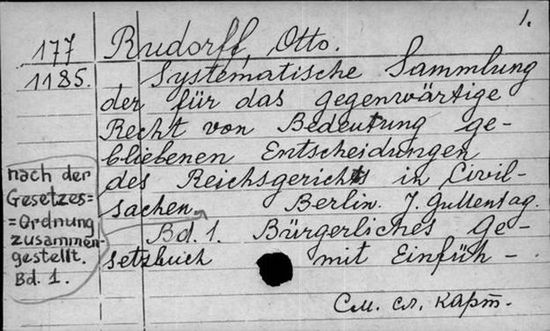 1.
177
1185.
Rudorff, Otto.
Systematische Sammlung
der für das gegenwärtige
Recht von Bedeutung ge-
bliebenen Entscheidungen
des Reichsgerichts in Civil-
sachen, Berlin. J. Guttentag.
Bd. 1. Bürgerliches Ge-
setzbuch mit Einfüh-
nach der
Gesetzes=
=Ordnung
zusammen-
gestellt.
Bd. 1.
См. сл. карт.